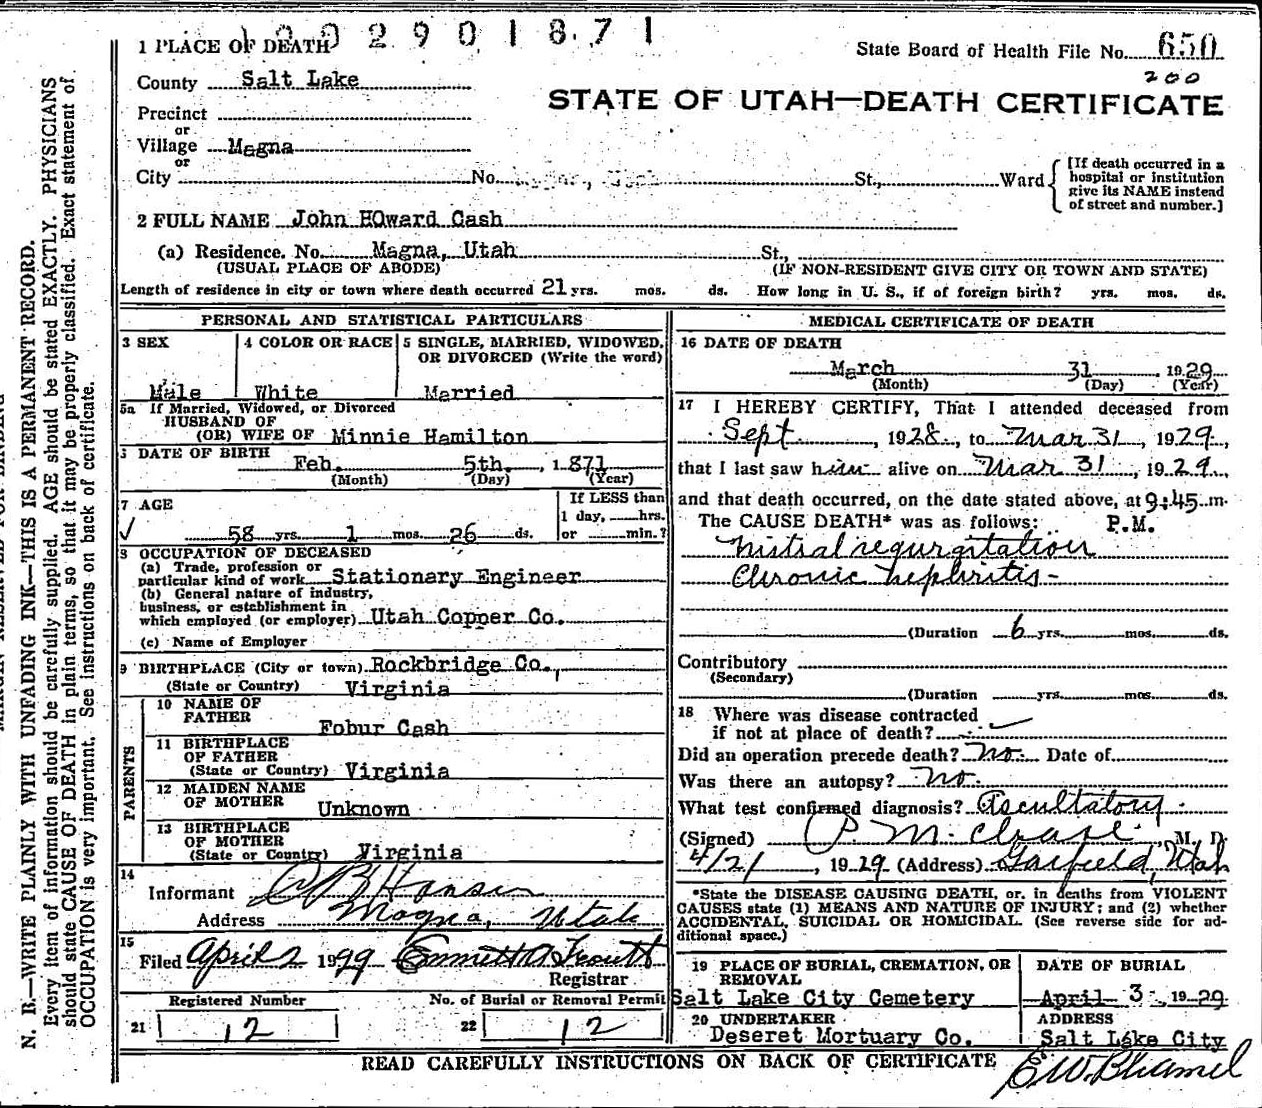 2901871
1 PLACE OF DEATH
State Board of Health File No. 650
200
County Salt Lake
STATE OF UTAH—DEATH CERTIFICATE
Precinct
or
Village Magna
or
City No. St., Ward
[If death occurred in a
hospital or institution
give its NAME instead
of street and number.]
2 FULL NAME John HOward Cash
(a) Residence. No. Magna, Utah St.,
(USUAL PLACE OF ABODE) (IF NON-RESIDENT GIVE CITY OR TOWN AND STATE)
Length of residence in city or town where death occurred 21 yrs. mos. ds. How long in U. S., if of foreign birth? yrs. mos. ds.
PERSONAL AND STATISTICAL PARTICULARS
3 SEX
Male
4 COLOR OR RACE
White
5 SINGLE, MARRIED, WIDOWED,
OR DIVORCED (Write the word)
Married
5a If Married, Widowed, or Divorced
HUSBAND OF
(OR) WIFE OF Minnie Hamilton
DATE OF BIRTH Feb. 5th, 1871
(Month) (Day) (Year)
7 AGE
58 yrs. 1 mos. 26 ds.
If LESS than
1 day, hrs.
or min.?
8 OCCUPATION OF DECEASED
(a) Trade, profession or
particular kind of work Stationary Engineer
(b) General nature of industry,
business, or establishment in
which employed (or employer) Utah Copper Co.
(c) Name of Employer
9 BIRTHPLACE (City or town) Rockbridge Co.,
(State or Country) Virginia
PARENTS
10 NAME OF
FATHER
Fobur Cash
11 BIRTHPLACE
OF FATHER
(State or Country) Virginia
12 MAIDEN NAME
OF MOTHER Unknown
13 BIRTHPLACE
OF MOTHER
(State or Country) Virginia
14
Informant Hansen
Address Magna, Utah
15
Filed April 2 1929 Emmett
Registrar
Registered Number
21 12
No. of Burial or Removal Permit
22 12
MEDICAL CERTIFICATE OF DEATH
16 DATE OF DEATH
March 31 1929
(Month) (Day) (Year)
17 I HEREBY CERTIFY, That I attended deceased from
Sept , 1928, to Mar 31, 1929,
that I last saw him alive on Mar 31, 1929,
and that death occurred, on the date stated above, at 9:45 m.
The CAUSE DEATH* was as follows: P.M.
Mitral regurgitation
Chronic nephritis-
(Duration 6 yrs. mos. ds.
Contributory
(Secondary)
(Duration yrs. mos. ds.
18 Where was disease contracted
if not at place of death?
Did an operation precede death? No. Date of
Was there an autopsy? No.
What test confirmed diagnosis? Ascultatory.
(Signed) , M. D.
4/2/, 1929 (Address) Garfield, Utah
*State the DISEASE CAUSING DEATH, or, in deaths from VIOLENT
CAUSES state (1) MEANS AND NATURE OF INJURY; and (2) whether
ACCIDENTAL, SUICIDAL OR HOMICIDAL. (See reverse side for ad-
ditional space.)
19 PLACE OF BURIAL, CREMATION, OR
REMOVAL
Salt Lake City Cemetery
DATE OF BURIAL
April 3, 1929
20 UNDERTAKER
Deseret Mortuary Co.
ADDRESS
Salt Lake City
READ CAREFULLY INSTRUCTIONS ON BACK OF CERTIFICATE
N. B.—WRITE PLAINLY WITH UNFADING INK—THIS IS A PERMANENT RECORD.
Every item of information should be carefully supplied. AGE should be stated EXACTLY. PHYSICIANS
should state CAUSE OF DEATH in plain terms, so that it may be properly classified. Exact statement of
OCCUPATION is very important. See instructions on back of certificate.